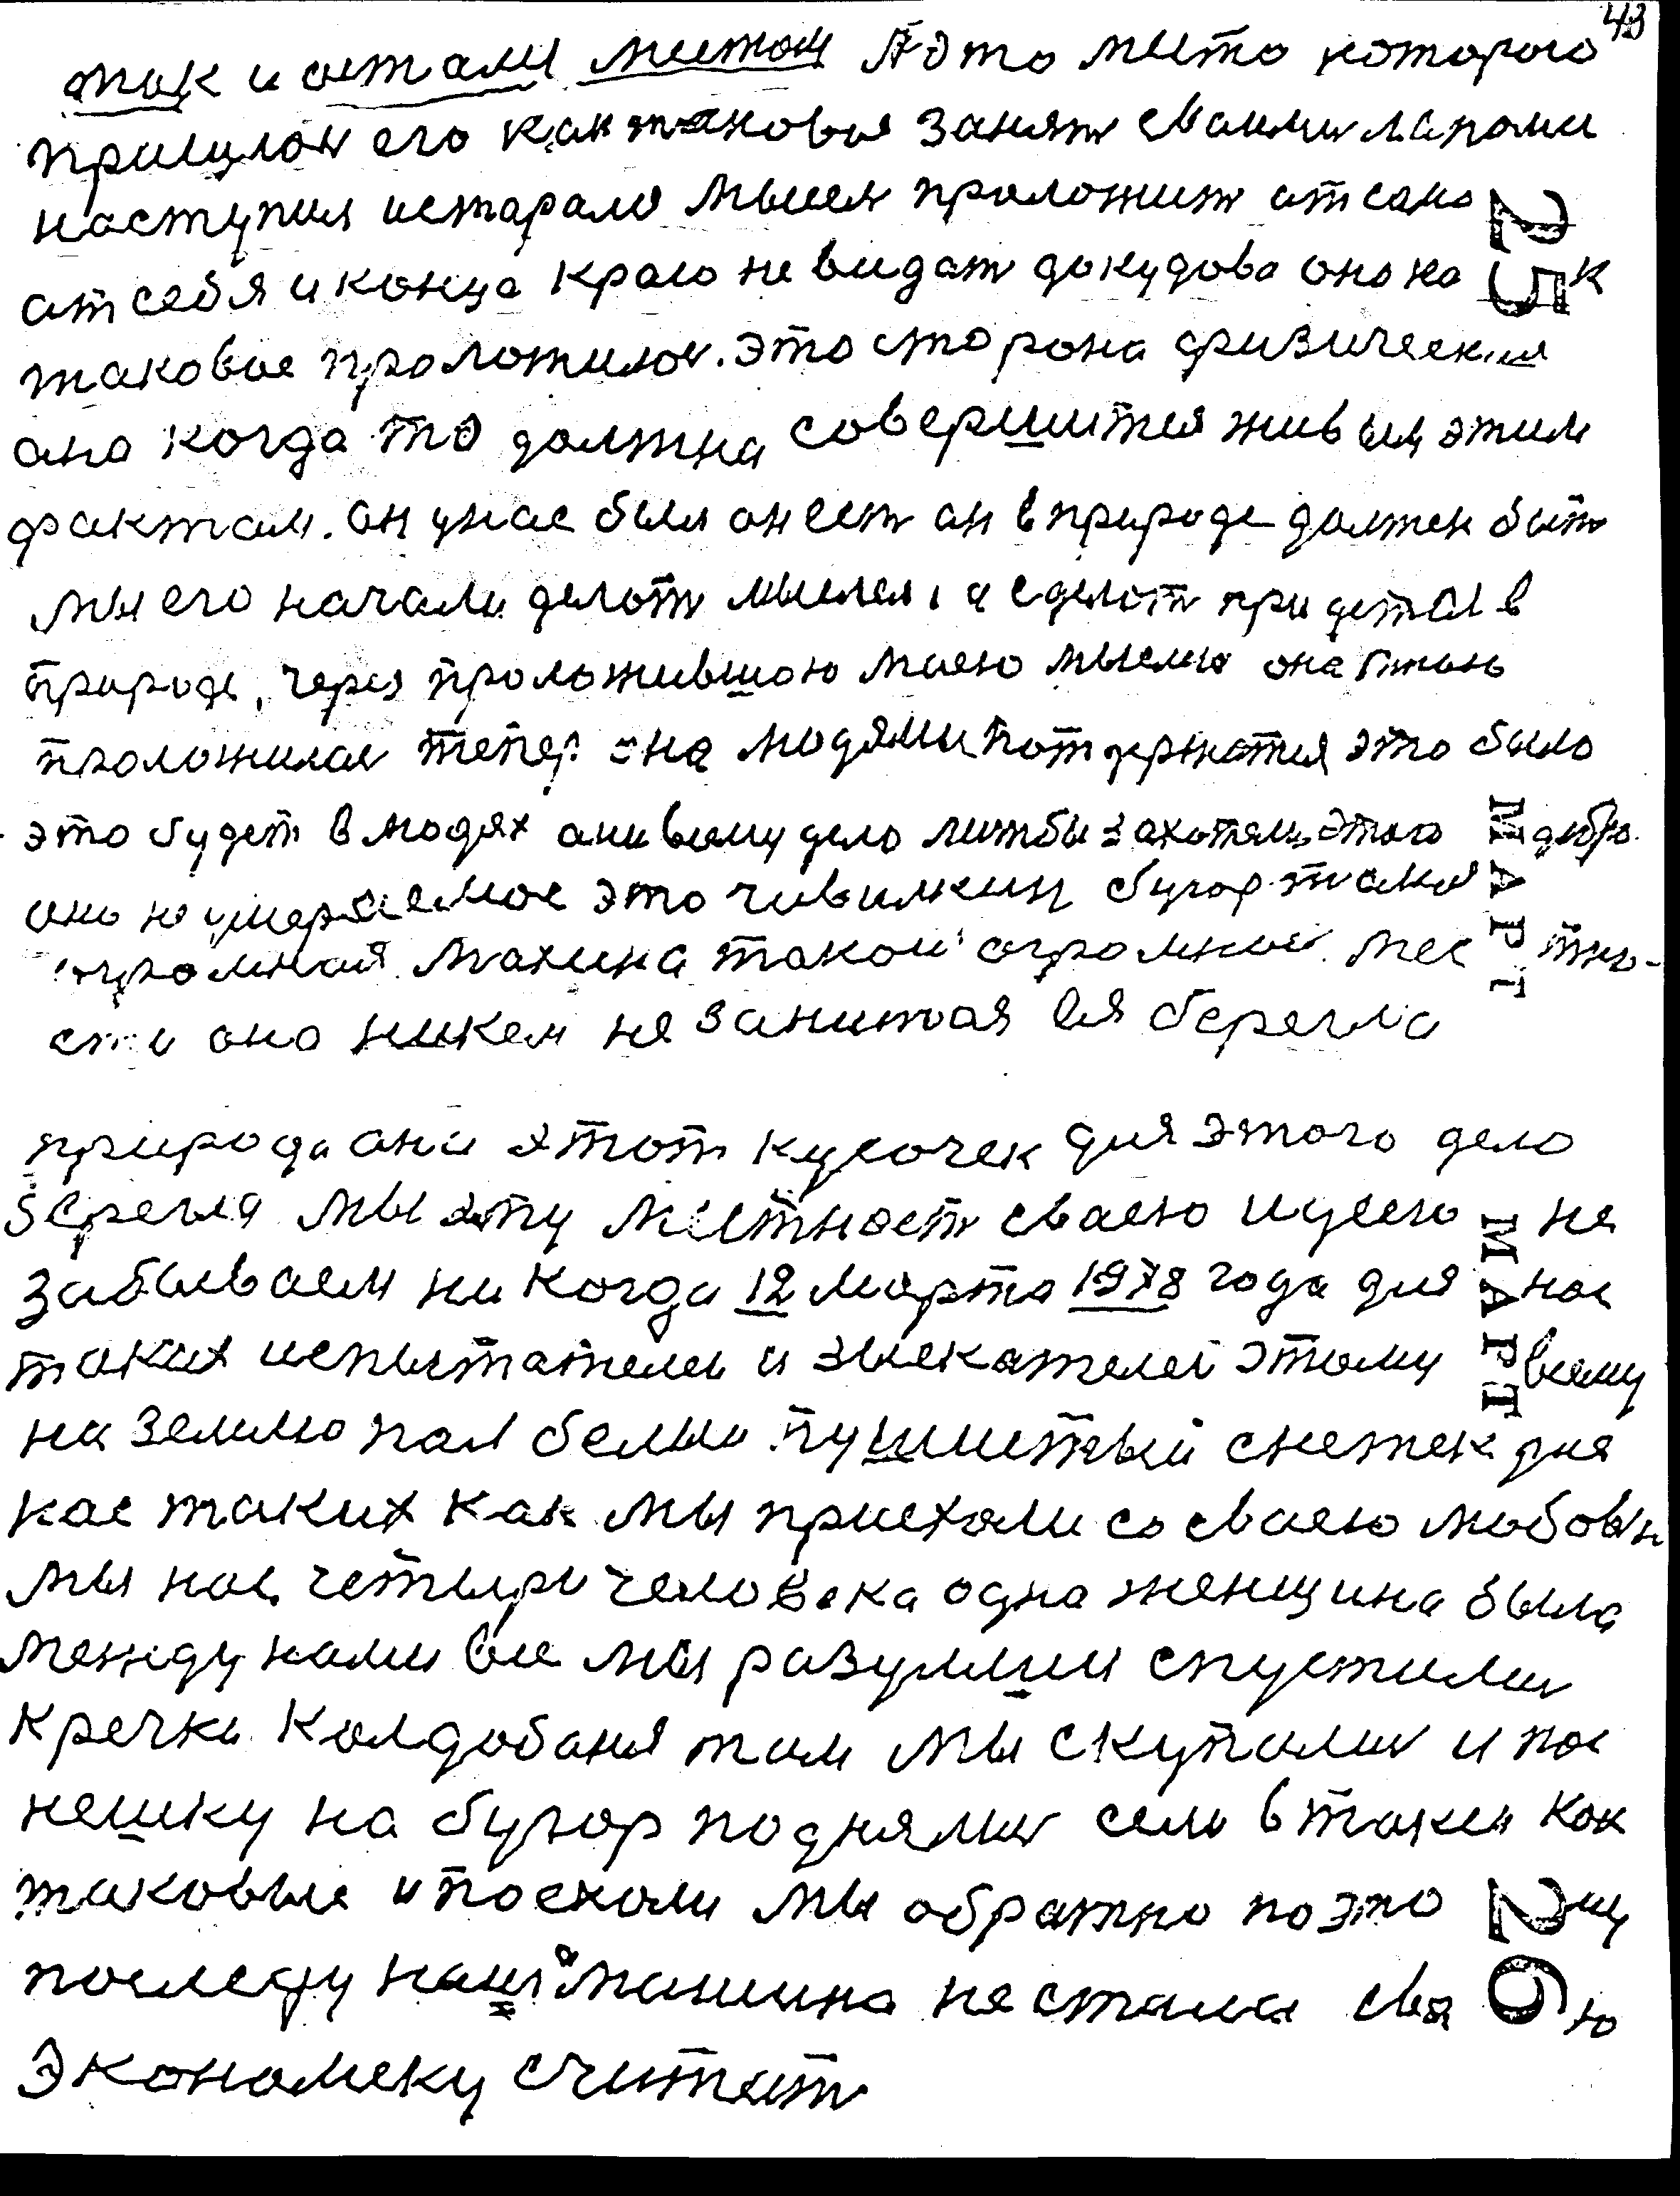 43
так и остали местом А это место которого
пришлось его как таковое занять своими лапоми
наступил истарало мысля проложит от само
ат себя и конца краю не видат докудова оно ка к
25
таковое проложилос. это сторона физическия
ана когда то должна совершится живым этим
фактам. он унас был он есть ан в природе должен быть
мы его начали делоть мыслей, а сделоть придется в
природе, через проложившою маею мыслию она
проложилас тепер она людями потдержатся это было
это будет в людях ани вэму дело литбы захотели этого добро.
МАРТ
оно неумераемое это чивилкин бугор такой
огромной махина такой огромной мес тно-
сти оно никем не занитая вся берегла
природа она этот кусочек для этого дело
берегла мы эту местност сваею идеею не
забываем ни когда 12 марта 1978 года для нас
МАРТ
таких испытателей и зыскателей этому всему
на землю пал белый пушистый снежек для
нас таких как мы приехали со сваею любовью
мы нас четыри человека одна женщина была
между нами все мы разулиси спустилис
к речки Колдобаня там мы скупалис и пос
нешку на бугор поднялис сели в такси как
таковые и поехали мы обратно поэто му
26
последу наша машина не стала сва ю
экономеку считать